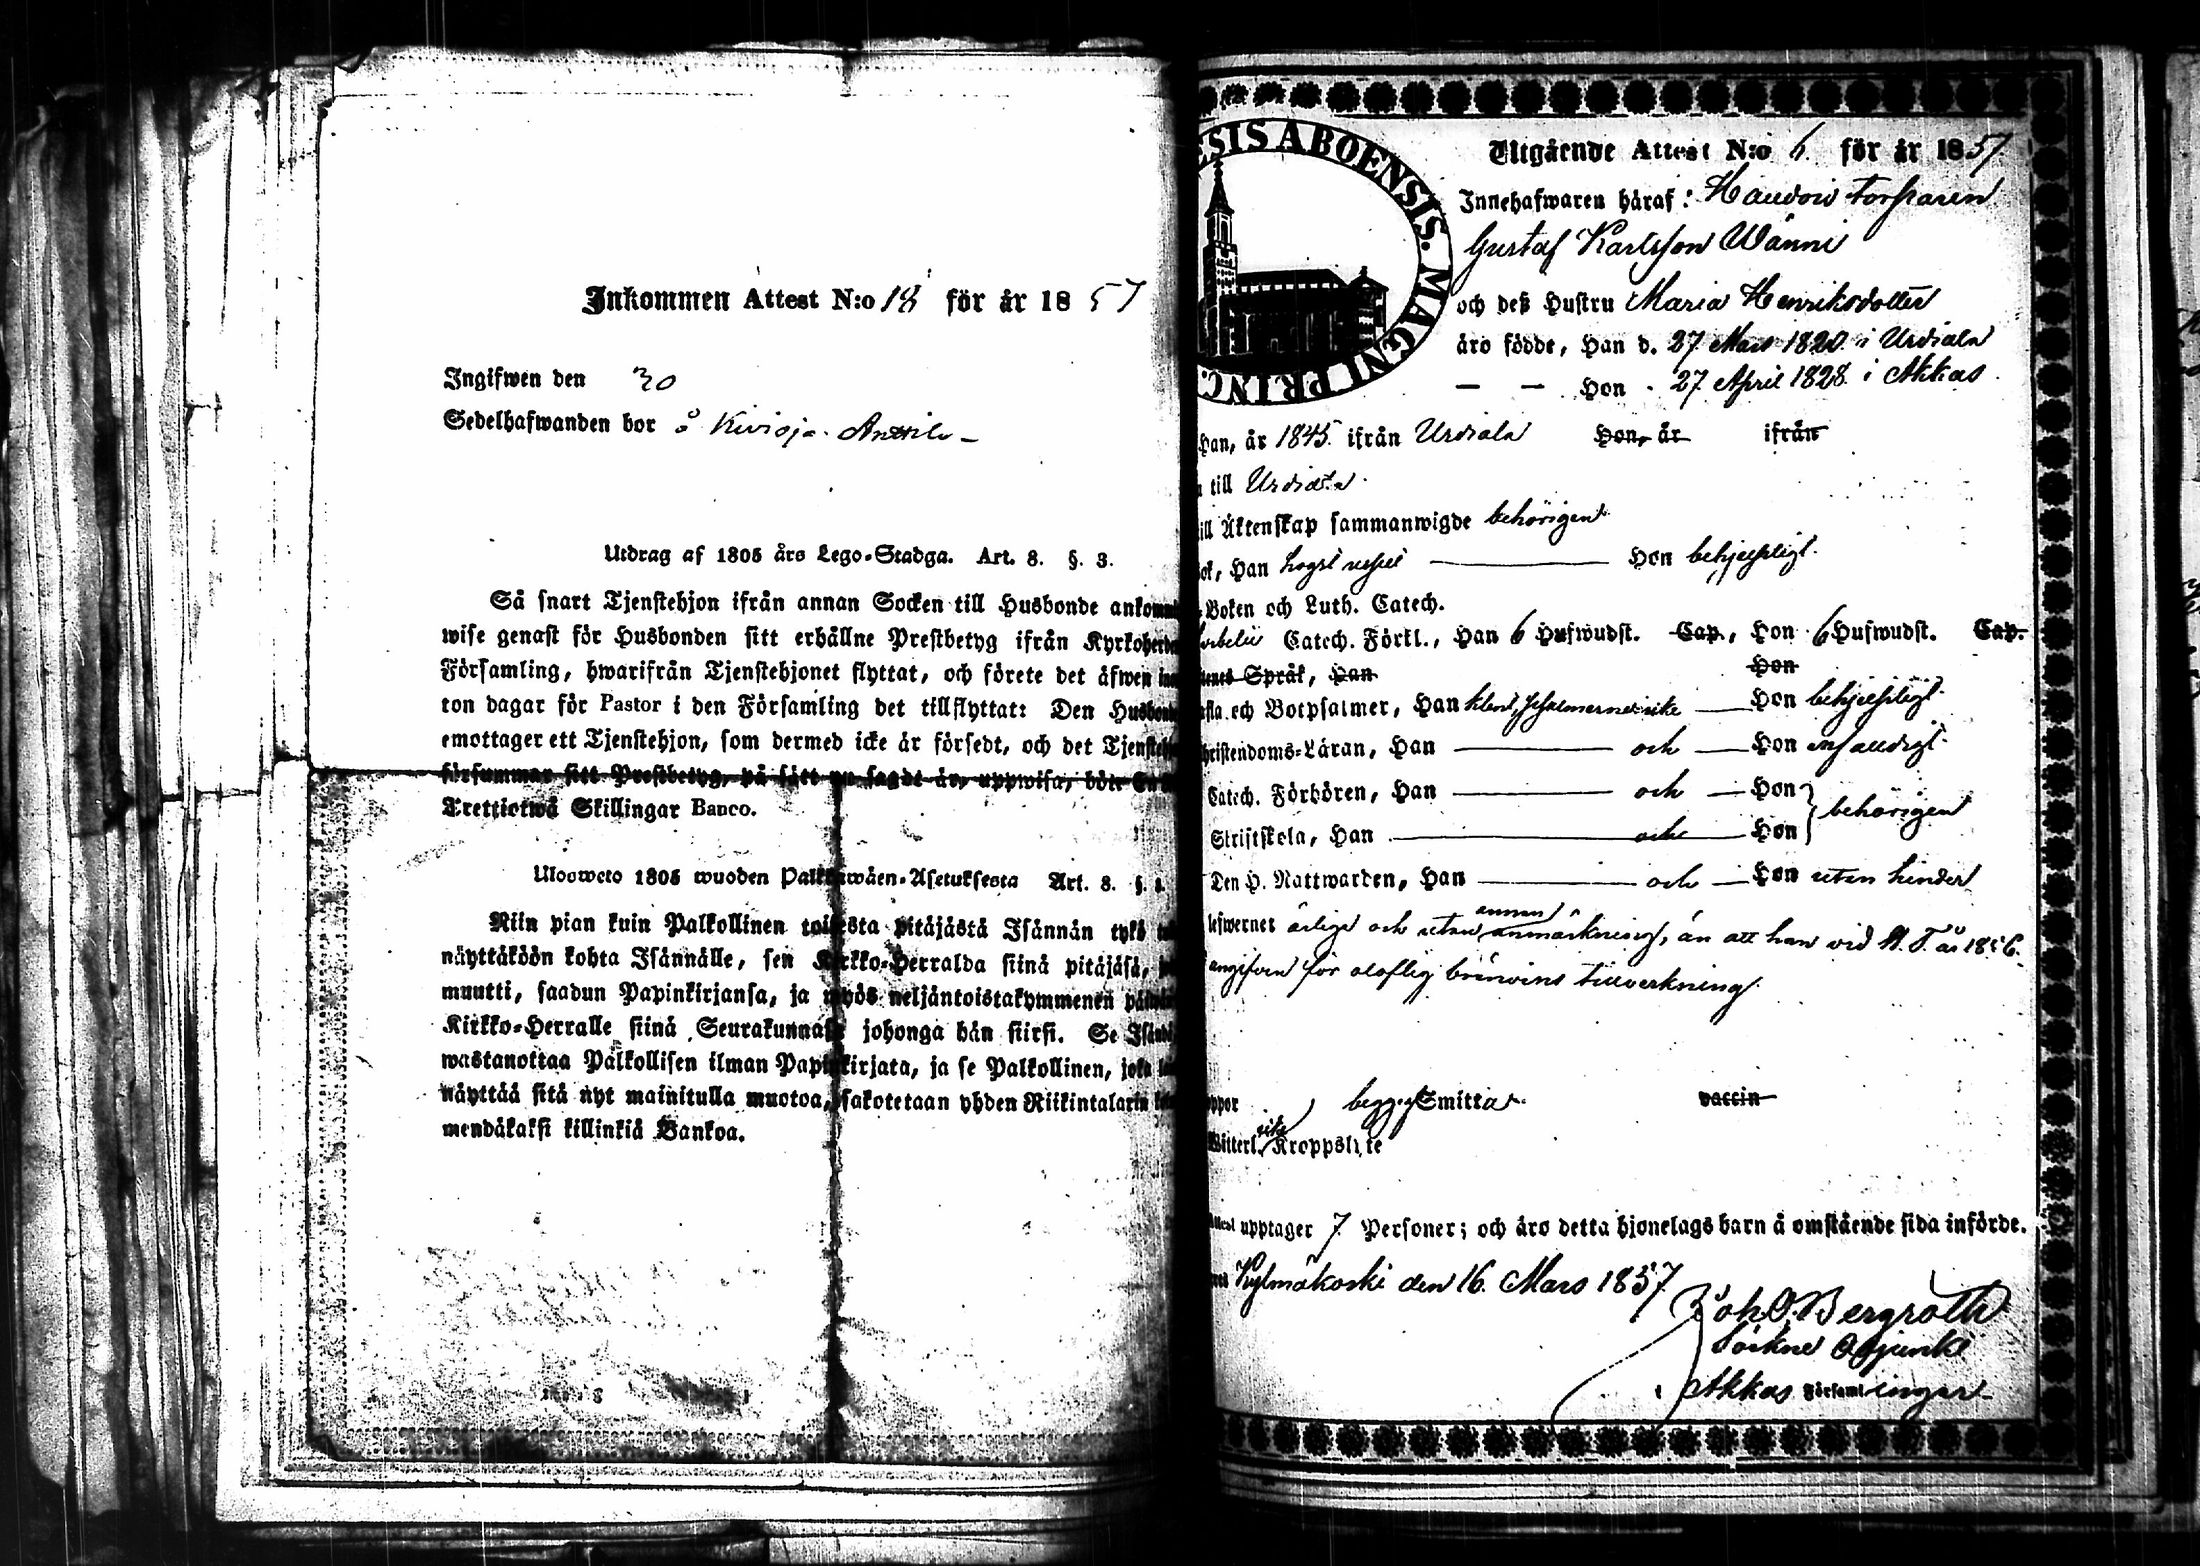 Inkommen Attest N:o 18 för år 1857
Ingifwen den 30
Sedelhafwanden bor å Kivioja Anttila
Utdrag af 1805 års Lego-Stadga. Art. 8. §. 3.
Så snart Tjenstehjon ifrån annan Socken till Husbonde ankomm
wise genast för Husbonden sitt erhållne Prestbetyg ifrån Kyrkoherde
Församling, hwarifrån Tjenstehjonet flyttat, och förete det äfwen inn
ton dagar för Pastor i den Församling det tillflyttat: Den Husbonde
emottager ett Tjenstehjon, som dermed icke är försedt, och det Tjenstehj
försummar sitt Prestbetyg, på sätt nu sagdt är, uppwisa, böte En
Trettiotwå Skillingar Banco.
Ulosweto 1805 wuoden Palkkawäen-Asetuksesta Art. 8. §. 3.
Niin pian kuin Palkollinen toisesta pitäjästä Isännän tykö
näyttäköön kohta Isännälle, sen Kirkko-Herralda siinä pitäjäsä,
muutti, saadun Papinkirjansa, ja myös neljäntoistakymmenen päiwän
Kirkko-Herralle siinä Seurakunnasa johonga hän siirsi. Se Isändä
wastanottaa Palkollisen ilman Papinkirjata, ja se Palkollinen, joka
näyttää sitä nyt mainitulla muotoa, sakotetaan yhden Riikintalarin
mendäkaksi killinkiä Bankoa.
ESIS ABOENSIS. MAGNI PRINC.
Utgående Attest N:o 6. för år 1857.
Innehafwaren häraf: Torparen
Gustaf Karlsson Wänni
och deß Hustru Maria Henriksdotter
äro födde, Han d. 27 Mars 1820 i Urdiala
— — Hon . 27 April 1828 i Akkas
Han, år 1845 ifrån Urdiala Hon, år ifrån
till Urdiala
till Äktenskap sammanwigde behörigen
bok, Han Hon behjelpligt.
Boken och Luth. Catech.
Catech. Förkl., Han 6 Hufwudst. Cap., Hon 6 Hufwudst. Cap.
Språk, Han Hon
och Botpsalmer, Han Hon behjelpligt
Christendoms-Läran, Han — och — Hon enfaldigt
Catech. Förhören, Han — och — Hon
Skriftskola, Han — och — Hon behörigen
Den H. Nattwarden, Han — och — Hon utan hinder
lefwernet ärlige och utan annan anmärkning, än att han vid H. T. år 1856.
angifven för olaflig bränvins tillverkning
begge Smittat vaccin
Witterl. Kroppslyte
upptager 7 Personer; och äro detta hjonelags barn å omstående sida införde.
Kylmäkoski den 16. Mars 1857.
Joh. O. Bergroth
Sockne Adjunkt
i Akkas Församlingar